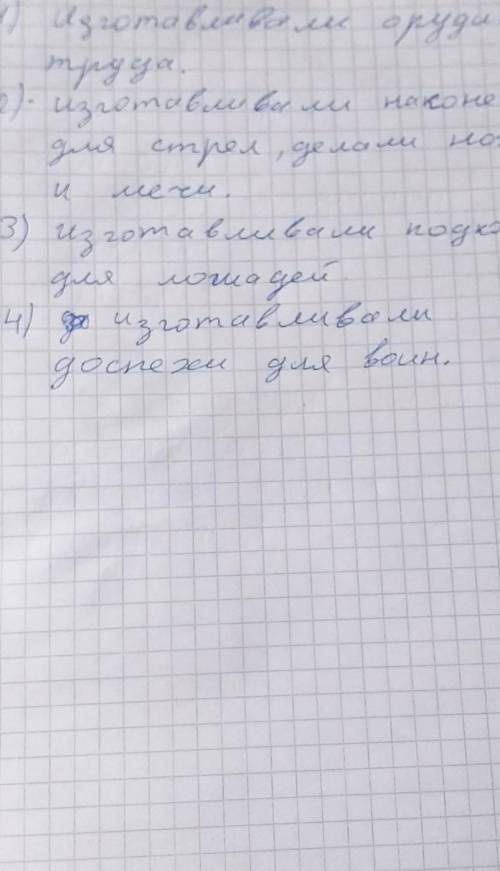 1) Изготавливали оруди
труда.
2) изготавливали наконе
для стрел, делали но
и мечи.
3) изготавливали подко
для лошадей.
4) изготавливали
доспехи для воин.